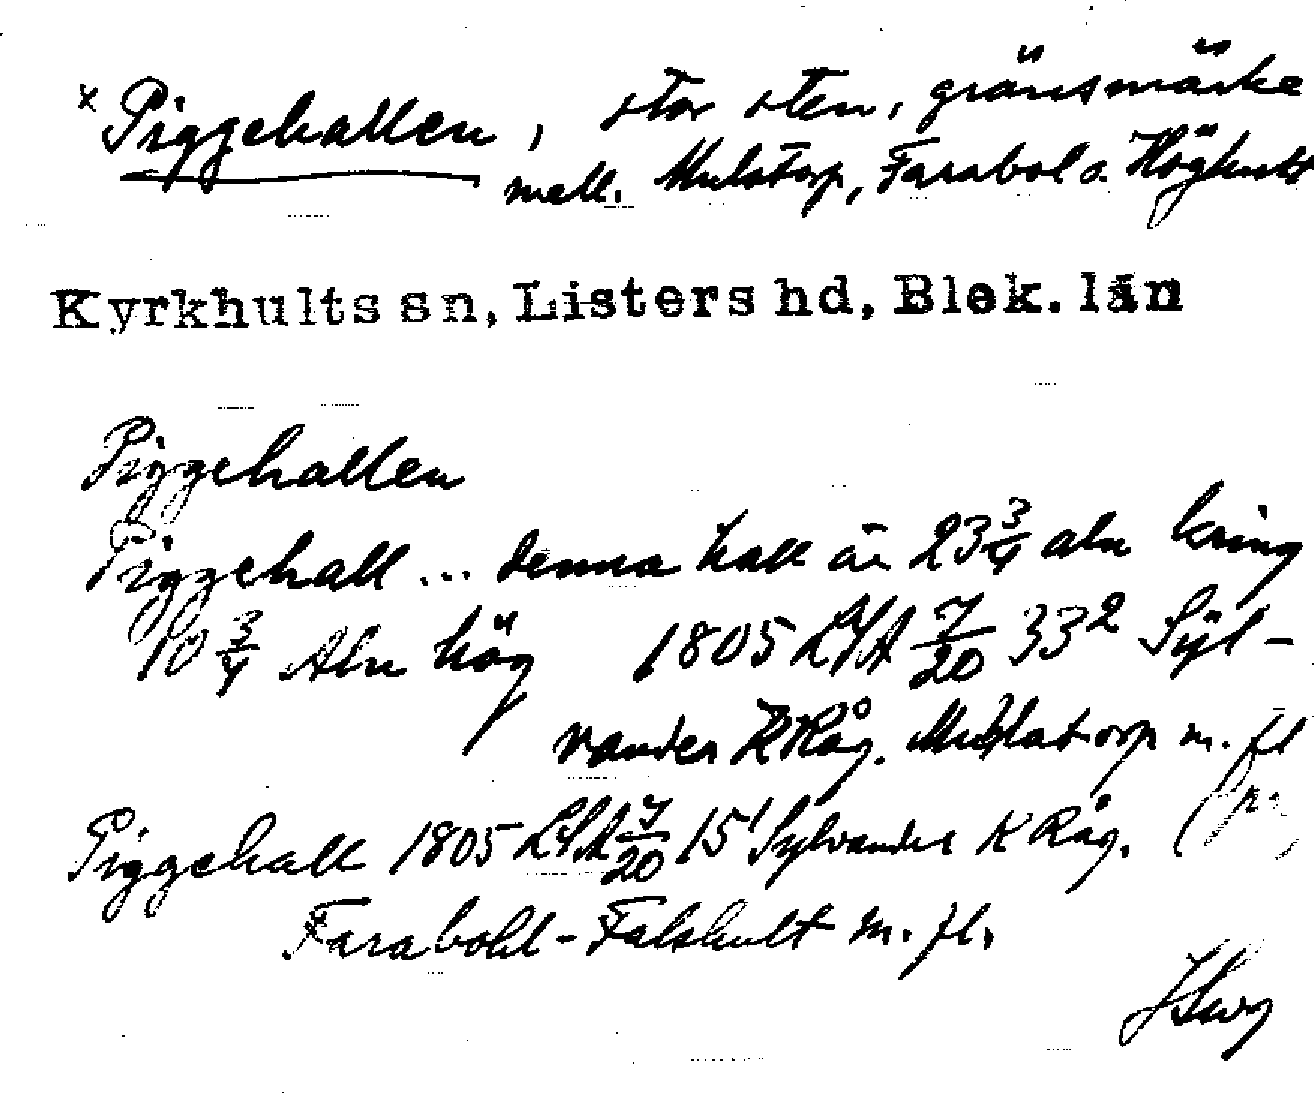 x Piggehallen, stor sten, gränsmärke
mell. Mulatorp, Farabol o. Höghult
Kyrkhults sn, Listers hd, Blek. län
Piggehallen
Piggehall ... denna hall är 23 3/4 aln kring
10 3/4 Aln hög 1805 LSA 7/20 33² Syl-
vander K Råg. Mulatorp m. fl
Piggehall 1805 LSA 7/20 15¹ Sylvander K Råg. (
Farabohl-Falshult m. fl.